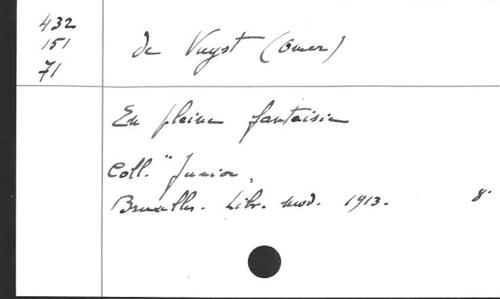 432
151
71
de Vuyst (Omer)
En pleine fantaisie
Coll. "Junior"
Bruxelles. Libr. mod. 1913. 8°